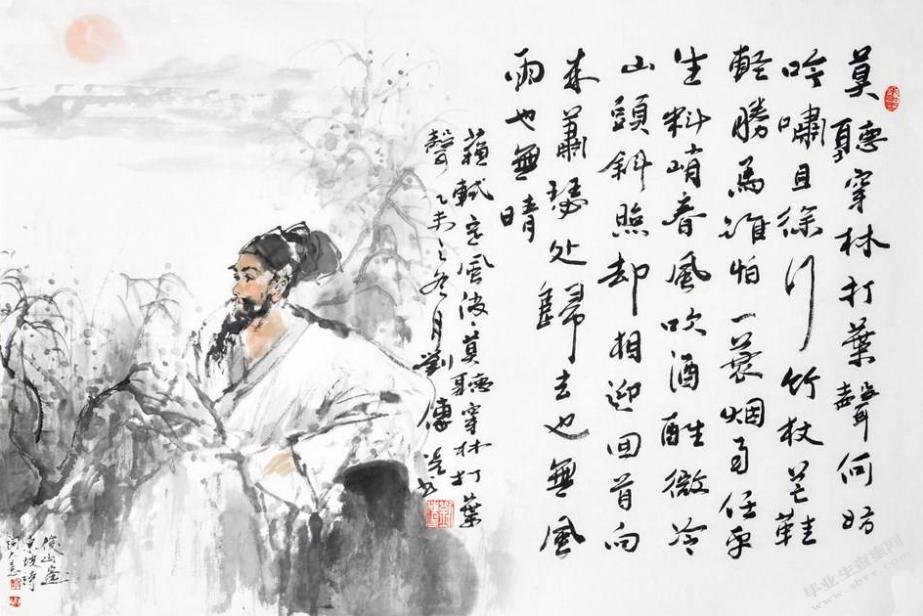 莫聽穿林打葉聲何妨
吟嘯且徐行竹杖芒鞋
輕勝馬誰怕一蓑烟雨任平
生料峭春風吹酒醒微冷
山頭斜照却相迎回首向
来蕭瑟处歸去也無風
雨也無晴
蘇軾定風波莫聽穿林打葉
聲乙未之冬月劉傅书
俊山画
東坡詩
词之意
毕业生查重网